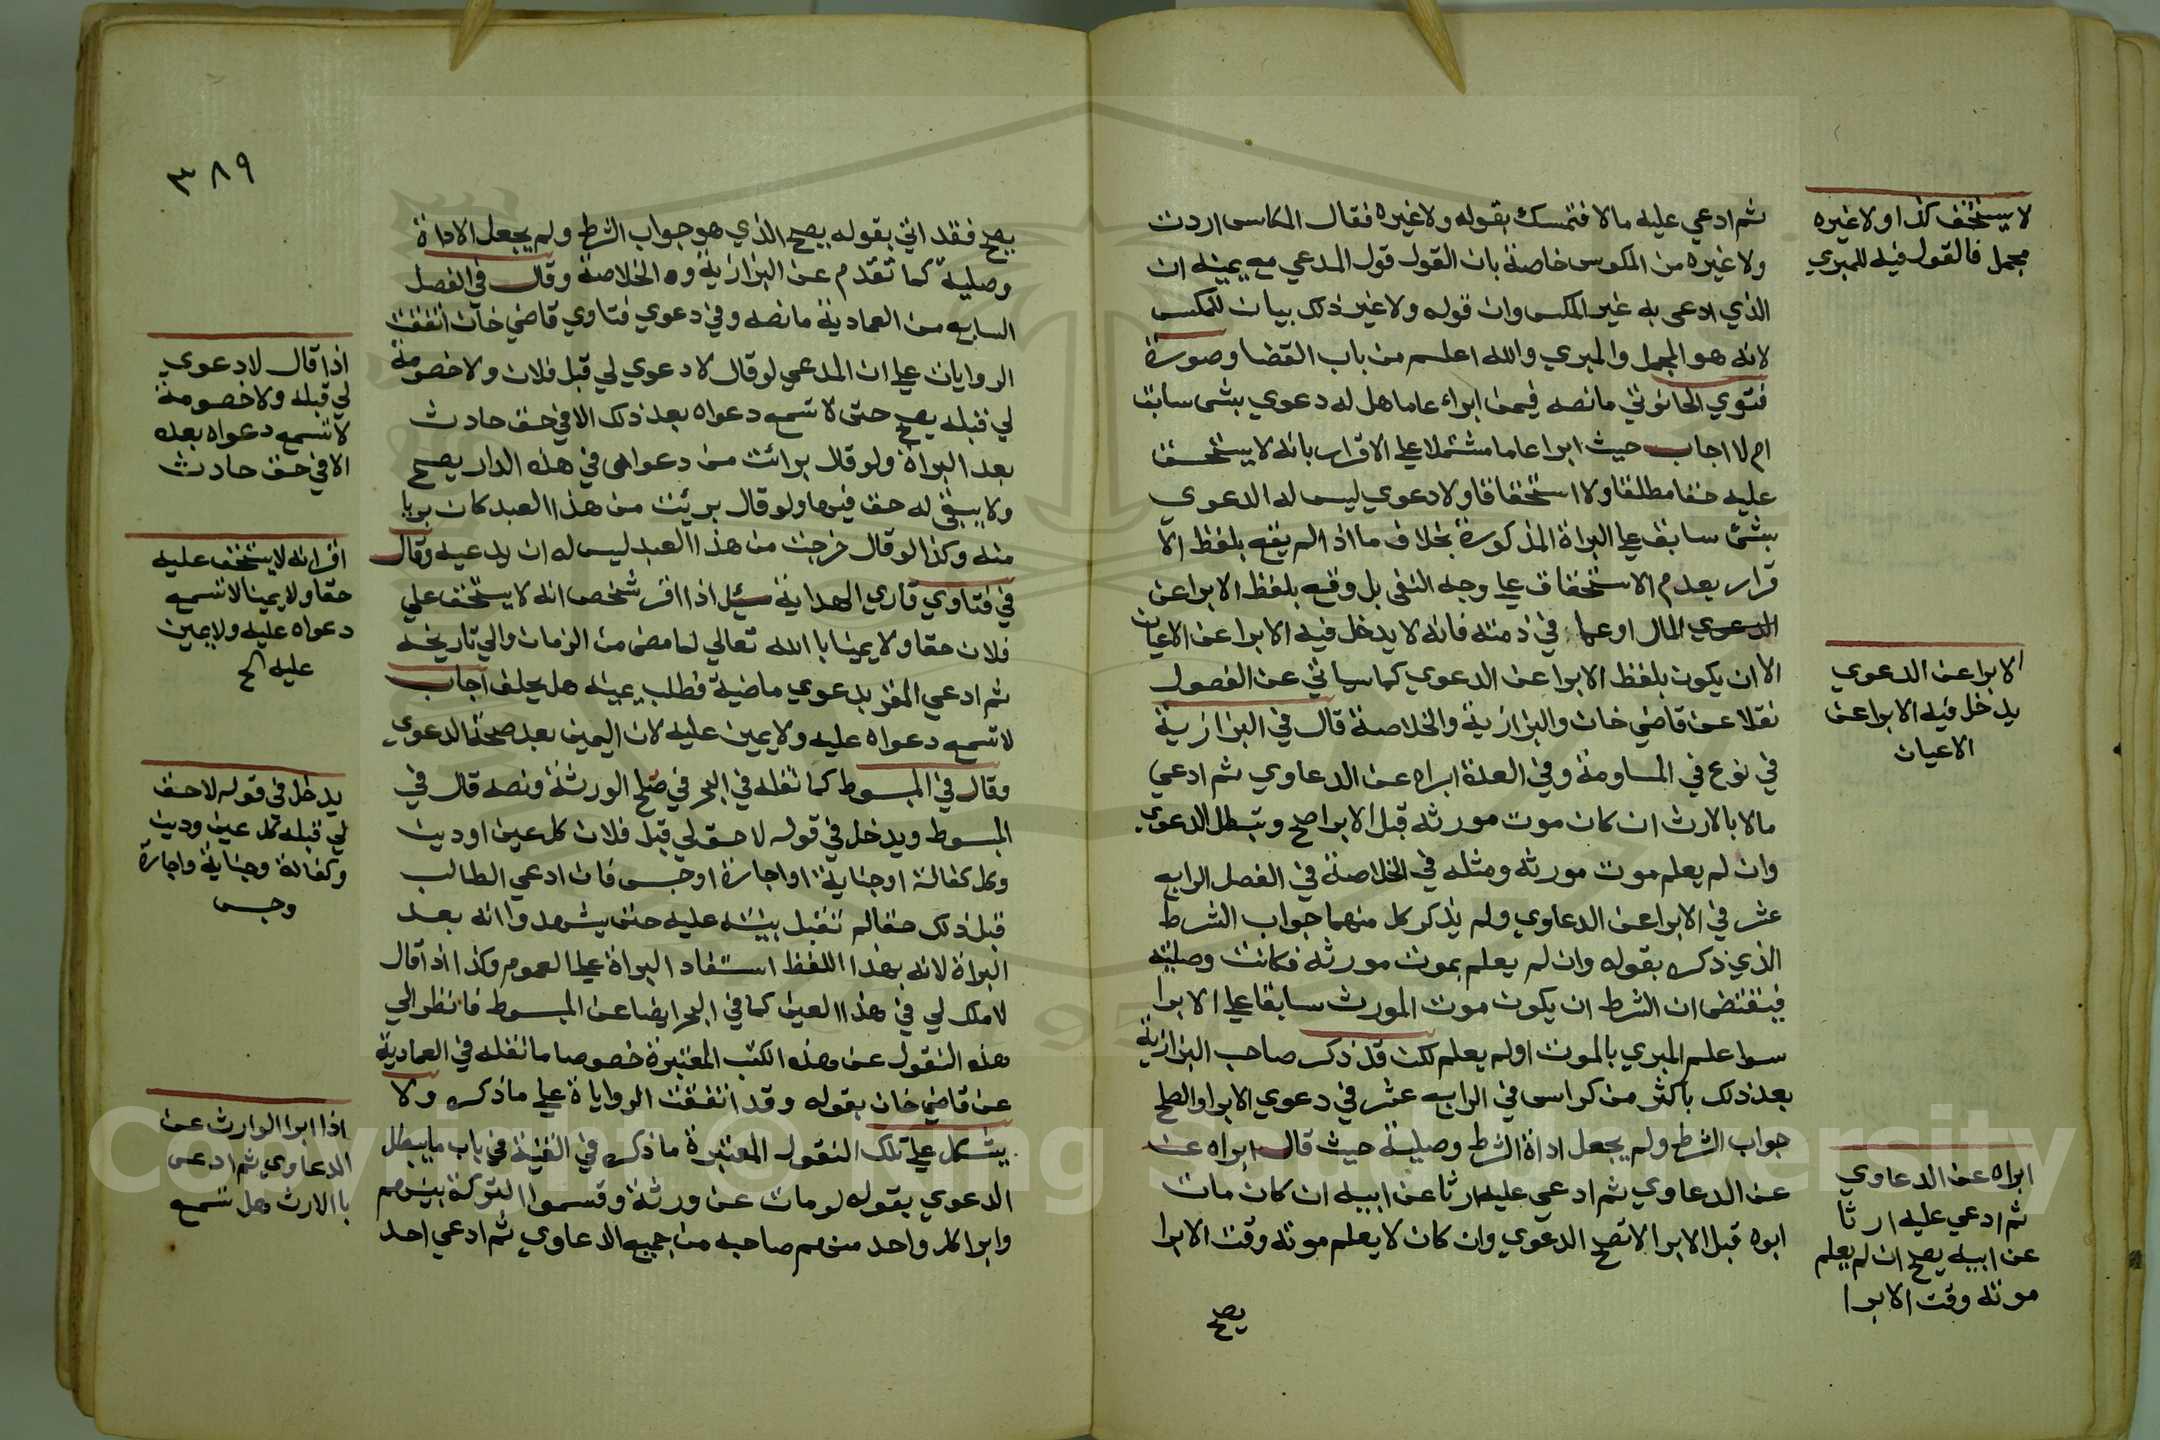 ثم ادعي عليه مالا فتمسك بقوله ولا غيره فقال المكاسى اردت
ولا غيره من المكوس خاصة بان القول قول المدعي مع يمينه ان
الذي ادعى به غير المكس وان قوله ولا غير ذلك بيان للمكس
لانه هو المجمل والمبري والله اعلم من باب القضا وصورة
فتوي الحانوتي ما نصه فيمن ابراء عاما هل له دعوي بشى سابق
ام لا اجاب حيث ابرا عاما مشتملا علي الاقرار بانه لا يستحق
عليه حقا مطلقا ولا استحقاقا ولا دعوي ليس له الدعوى
بشئ سابق علي البراة المذكورة بخلاف ما اذا لم يقع بلفظ الا
قرار بعدم الاستحقاق علي وجه النفى بل وقع بلفظ الابرا عن
الدعوي المال او عما في ذمته فانه لا يدخل فيه الابرا عن الاعيان
الا ان يكون بلفظ الابرا عن الدعوي كما سياتي عن الفصول
نقلا عن قاضي خان والبزازية والخلاصة قال في البزازية
في نوع في المساومة وفي العدة ابراه عن الدعاوي ثم ادعي
مالا بالارث ان كان موت مورثه قبل الابرا صح وتبطل الدعوي
وان لم يعلم موت مورثه ومثله في الخلاصة في الفصل الرابع
عشر في الابرا عن الدعاوي ولم يذكر كل منهما جواب الشرط
الذي ذكره بقوله وان لم يعلم بموت مورثه فكانت وصلية
فيقتضى ان الشرط ان يكون موت المورث سابقا علي الابرا
سوا علم المبري بالموت او لم يعلم لكن قد ذكر صاحب البزازية
بعد ذلك باكثر من كراسى في الرابع عشر في دعوي الابرا والصلح
جواب الشرط ولم يجعل اداة الشرط وصلية حيث قال ابراه عن
عن الدعاوي ثم ادعي عليه ارثا عن ابيه ان كان مات
ابوه قبل الابرا لا تصح الدعوي وان كان لا يعلم موته وقت الابرا
يصح
لا يستحق كذا ولا غيره
مجمل فالقول فيه للمبري
الابرا عن الدعوي
يدخل فيه الابرا عن
الاعيان
ابراه عن الدعاوي
ثم ادعي عليه ارثا
عن ابيه يصح ان لم يعلم
موته وقت الابرا
٣٨٩
يصح فقد اتي بقوله يصح الذي هو جواب الشرط ولم يجعل الاداة
وصلية كما تقدم عن البزازية و الخلاصة وقال في الفصل
السابع من العمادية ما نصه وفي دعوي فتاوي قاضي خان اتفقت
الروايات علي ان المدعي لو قال لا دعوي لي قبل فلان ولا خصومة
لي قبله يصح حتى لا تسمع دعواه بعد ذلك الا في حق حادث
بعد البراة ولو قال برائت من دعواهى في هذه الدار يصح
ولا يبقي له حق فيها ولو قال بريئت من هذا العبد كان بريا
منه وكذا لو قال خرجت من هذا العبد ليس له ان يدعيه وقال
في فتاوي قاري الهداية سئل اذا اقر شخص انه لا يستحق علي
فلان حقا ولا يمينا با الله تعالي لما مضى من الزمان والي تاريخه
ثم ادعي المقر بدعوي ماضية فطلب يمينه هل يحلف اجاب
لا تسمع دعواه عليه ولا يمين عليه لان اليمين بعد صحة الدعوي
وقال في المبسوط كما نقله في البحر في صلح الورثة ونصه قال في
المبسوط ويدخل في قوله لا حق لي قبل فلان كل عين او دين
وكل كفالة او جناية او اجارة او حـس فان ادعي الطالب
قبل ذلك حقا لم تقبل بينته عليه حتى يشهدوا انه بعد
البراة لانه بهذا اللفظ استفاد البراة علي العموم وكذا اذا قال
لا ملك لي في هذا العين كما في البحر ايضا عن المبسوط فانظر الي
هذه النقول عن هذه الكتب المعتبرة خصوصا ما نقله في العمادية
عن قاضي خان بقوله وقد اتفقت الرواياة علي ما ذكر ولا
يشكل علي تلك النقول المعتبرة ما ذكره في القنية في باب ما يبطل
الدعوي بقوله لو مات عن ورثة وقسموا التركة بينهم
وابرا كل واحد منهم صاحبه من جميع الدعاوي ثم ادعي احد
اذا قال لا دعوي
لي قبله ولا خصومة
لا تسمع دعواه بعده
الا في حق حادث
اقر انه لا يستحق عليه
حقا ولا يمينا لا تسمع
دعواه عليه ولا يمين
عليه الخ
يدخل في قوله لا حق
لي قبله كل عين ودين
وكفالة وجناية واجارة
وحـس
اذا ابرا الوارث عن
الدعاوي ثم ادعى
باالارث هل تسمع
Copyright © King Saud University